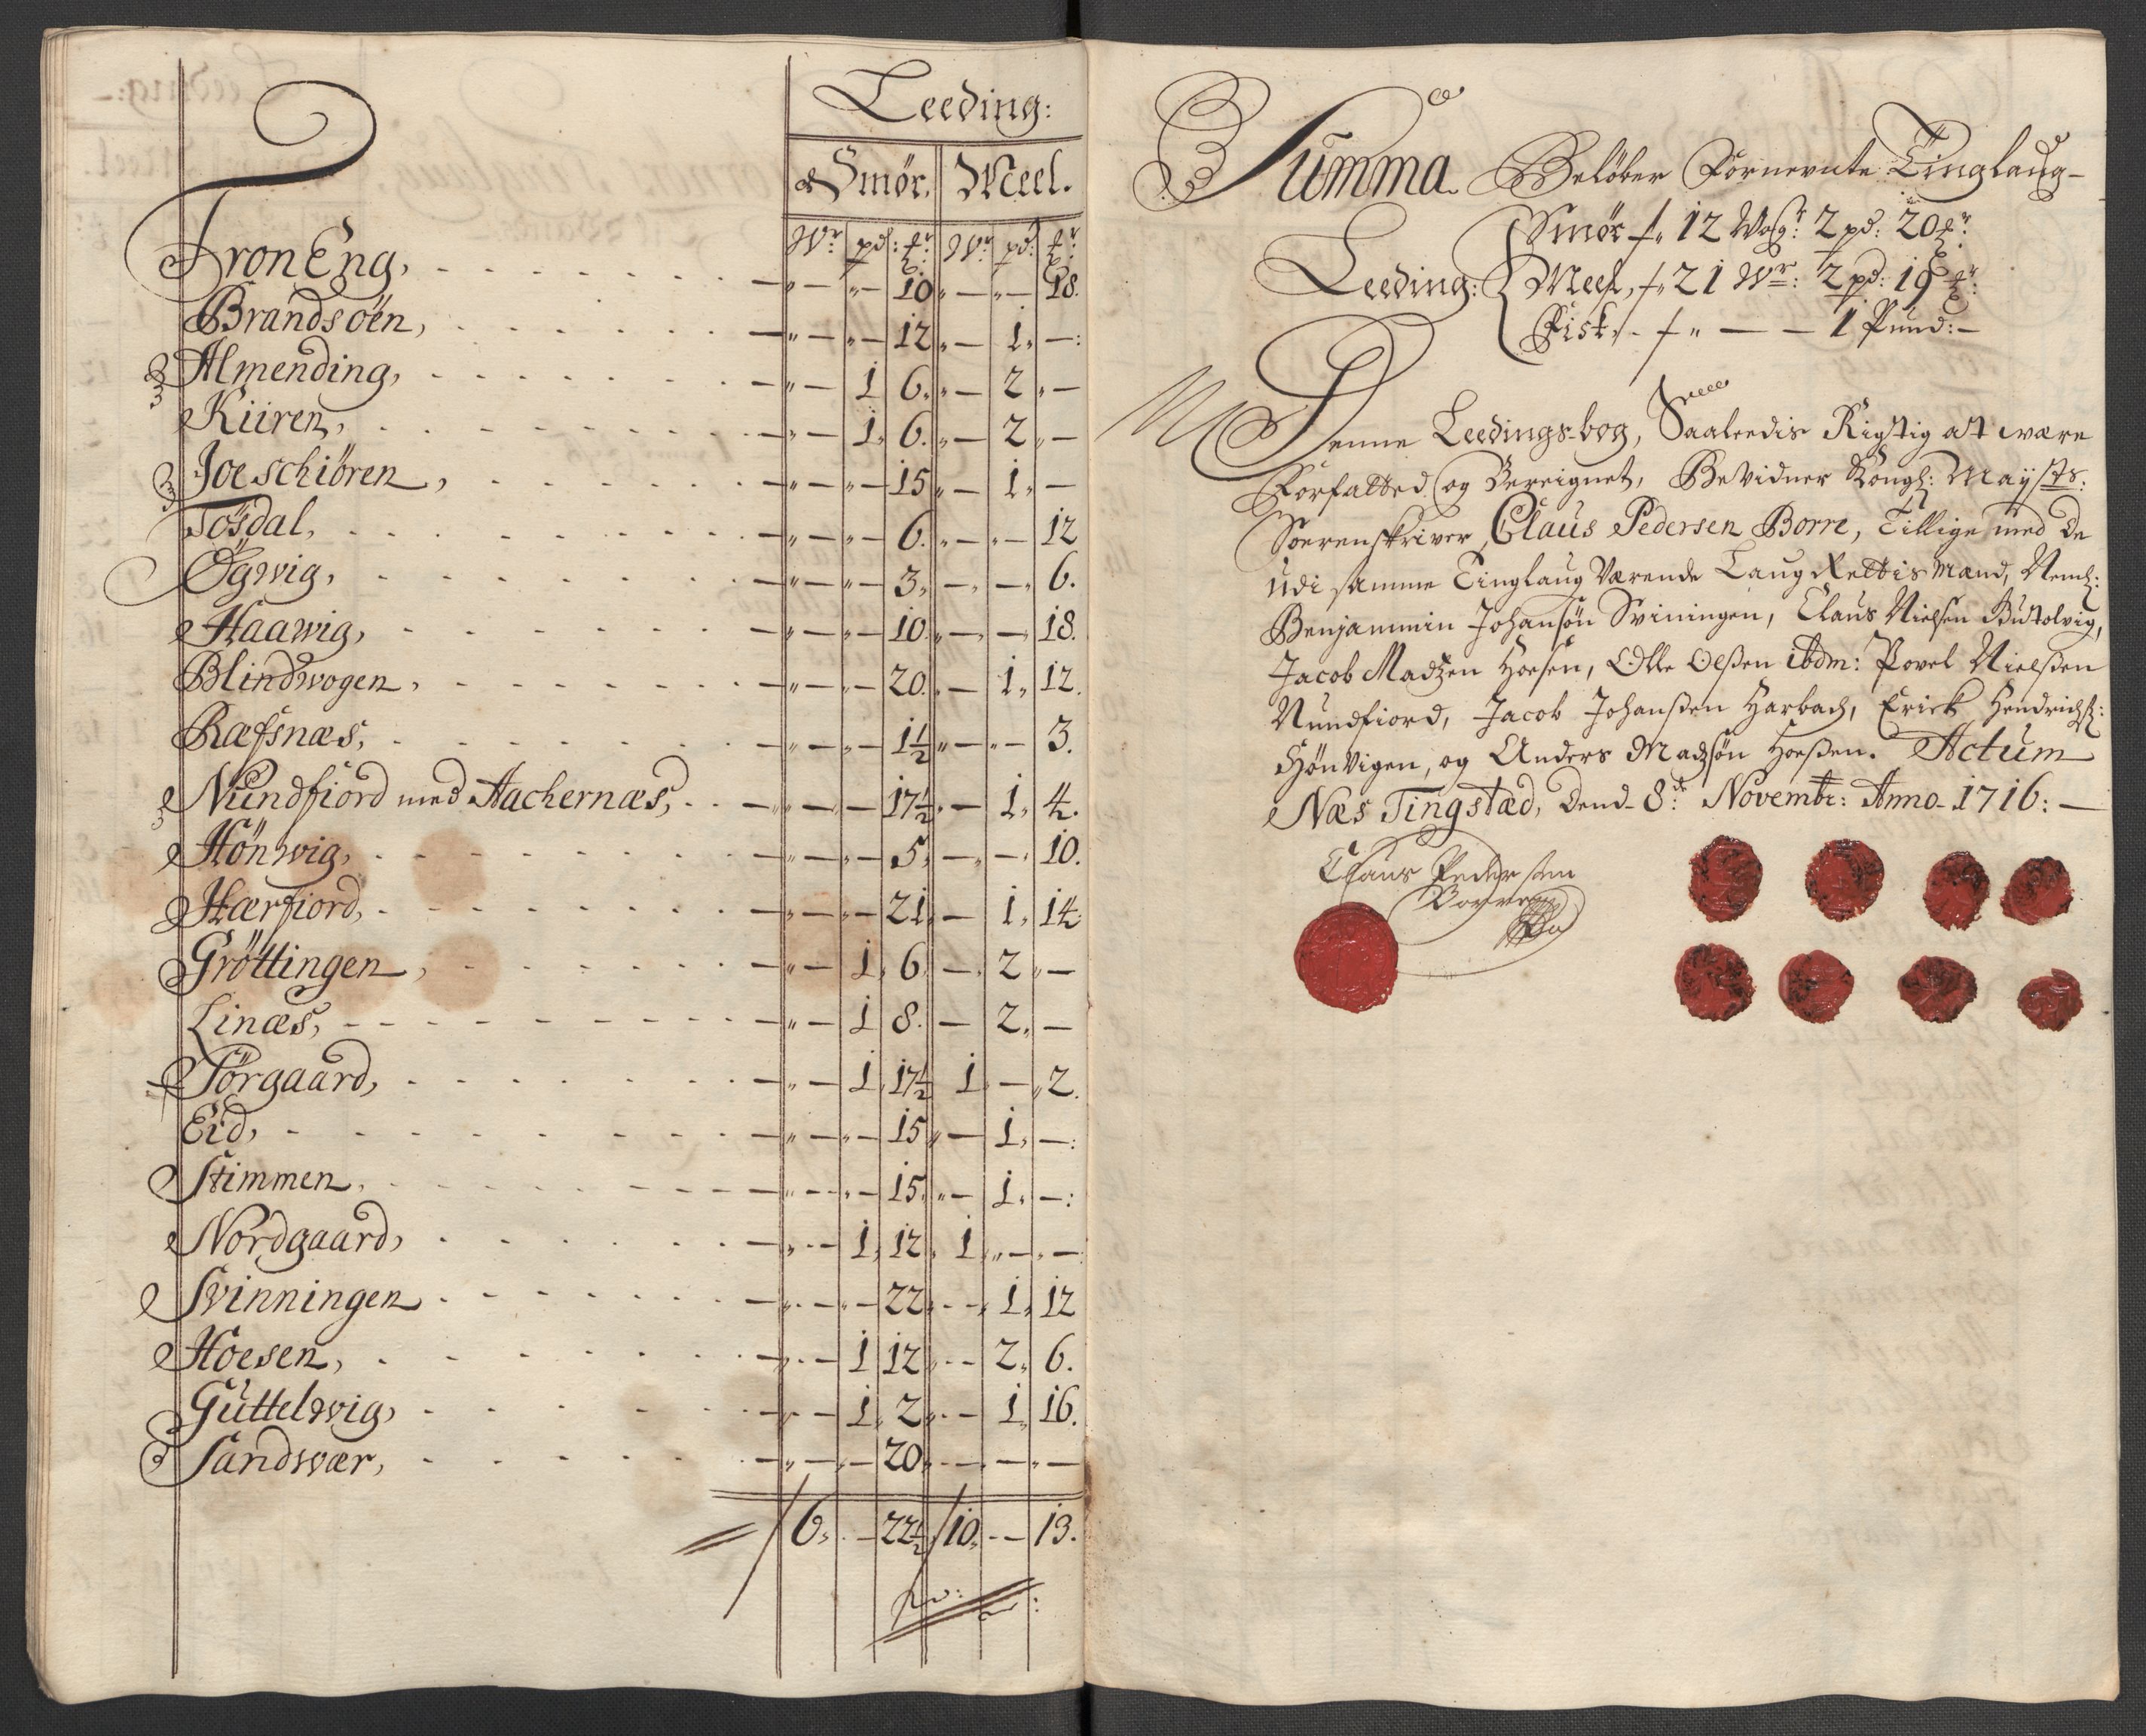 Leeding:
Smør. Meel.
Wr: pd: Wr: pd:
Fron Eng, „ — „ — 10 „ — „ — 18.
Brandsöen, „ — „ — 12 „ — 1, — :
Almending, „ — 1 6. „ — 2 „ —
Kiiren, „ — 1, 6. „ — 2 „ —
Joeschiören, „ — „ — 15 „ — 1, —
Tösdal, „ — „ — 6. „ — „ — 12
Ögwig, „ — „ — 3, — , — , 6.
Haawig, „ — „ — 10 „ — , — 18.
Blindwogen, „ — „ — 20. „ — 1, 12.
Ræfsnæs, „ — „ — 1½ „ — „ — 3.
Nundfiord med Aachernæs, „ — „ — 17½ „ — 1, 4.
Hönwig, „ — „ — 5, — , — , 10.
Hærfiord, „ — „ — 21, — 1, 14
Gröttingen, „ — 1, 6, — , 2 „ —
Linæs, „ — 1 8. — 2, —
Törgaard, „ — 1, 17½ 1 — „ 2.
Eid, „ — „ — 15 „ — 1, — :
Stimmen, „ — „ — 15, „ — 1, — :
Nordgaard, „ — 1, 12, 1, „ — , —
Svinningen „ — „ — 22, — 1, 12
Hoesen, „ — 1 12 „ — 2, 6.
Guttelwig, „ — 1, 2 „ — 1, 16.
Sandwær, „ — „ — 20, — , — , —
6, — 22½ 10, — 13.
Summa Belöber Fornevnte Tinglaug-
Smör 12 Wogr: 2 pd: 20
Leeding: Meel, 21 Wr: 2 pd: 19
Fisk, „ — — 1 Pund: —
Denne Leedings-bog, Saaleedis Rigtig att være
Forfatted og Bereignet, Bevidner Kongl: Maysts:
Sorenskriver Claus Pedersen Borre, Tillige med De
udi samme Tinglaug Værende Laug Rettis Mænd, Neml:
Benjammin Johansön Sviningen, Claus Nielsen Guttolvig,
Jacob Madzen Hoesen, Olle Olßen ibdm: Povel Nielßen
Nundfiord, Jacob Johanßen Harbach, Erick Hendrichß:
Hönvigen, og Anders Madsön Hoeßen. Actum
Næs Tingstæd, Dend 8de Novembr: Anno 1716: —
Claus Pedersen
Borre